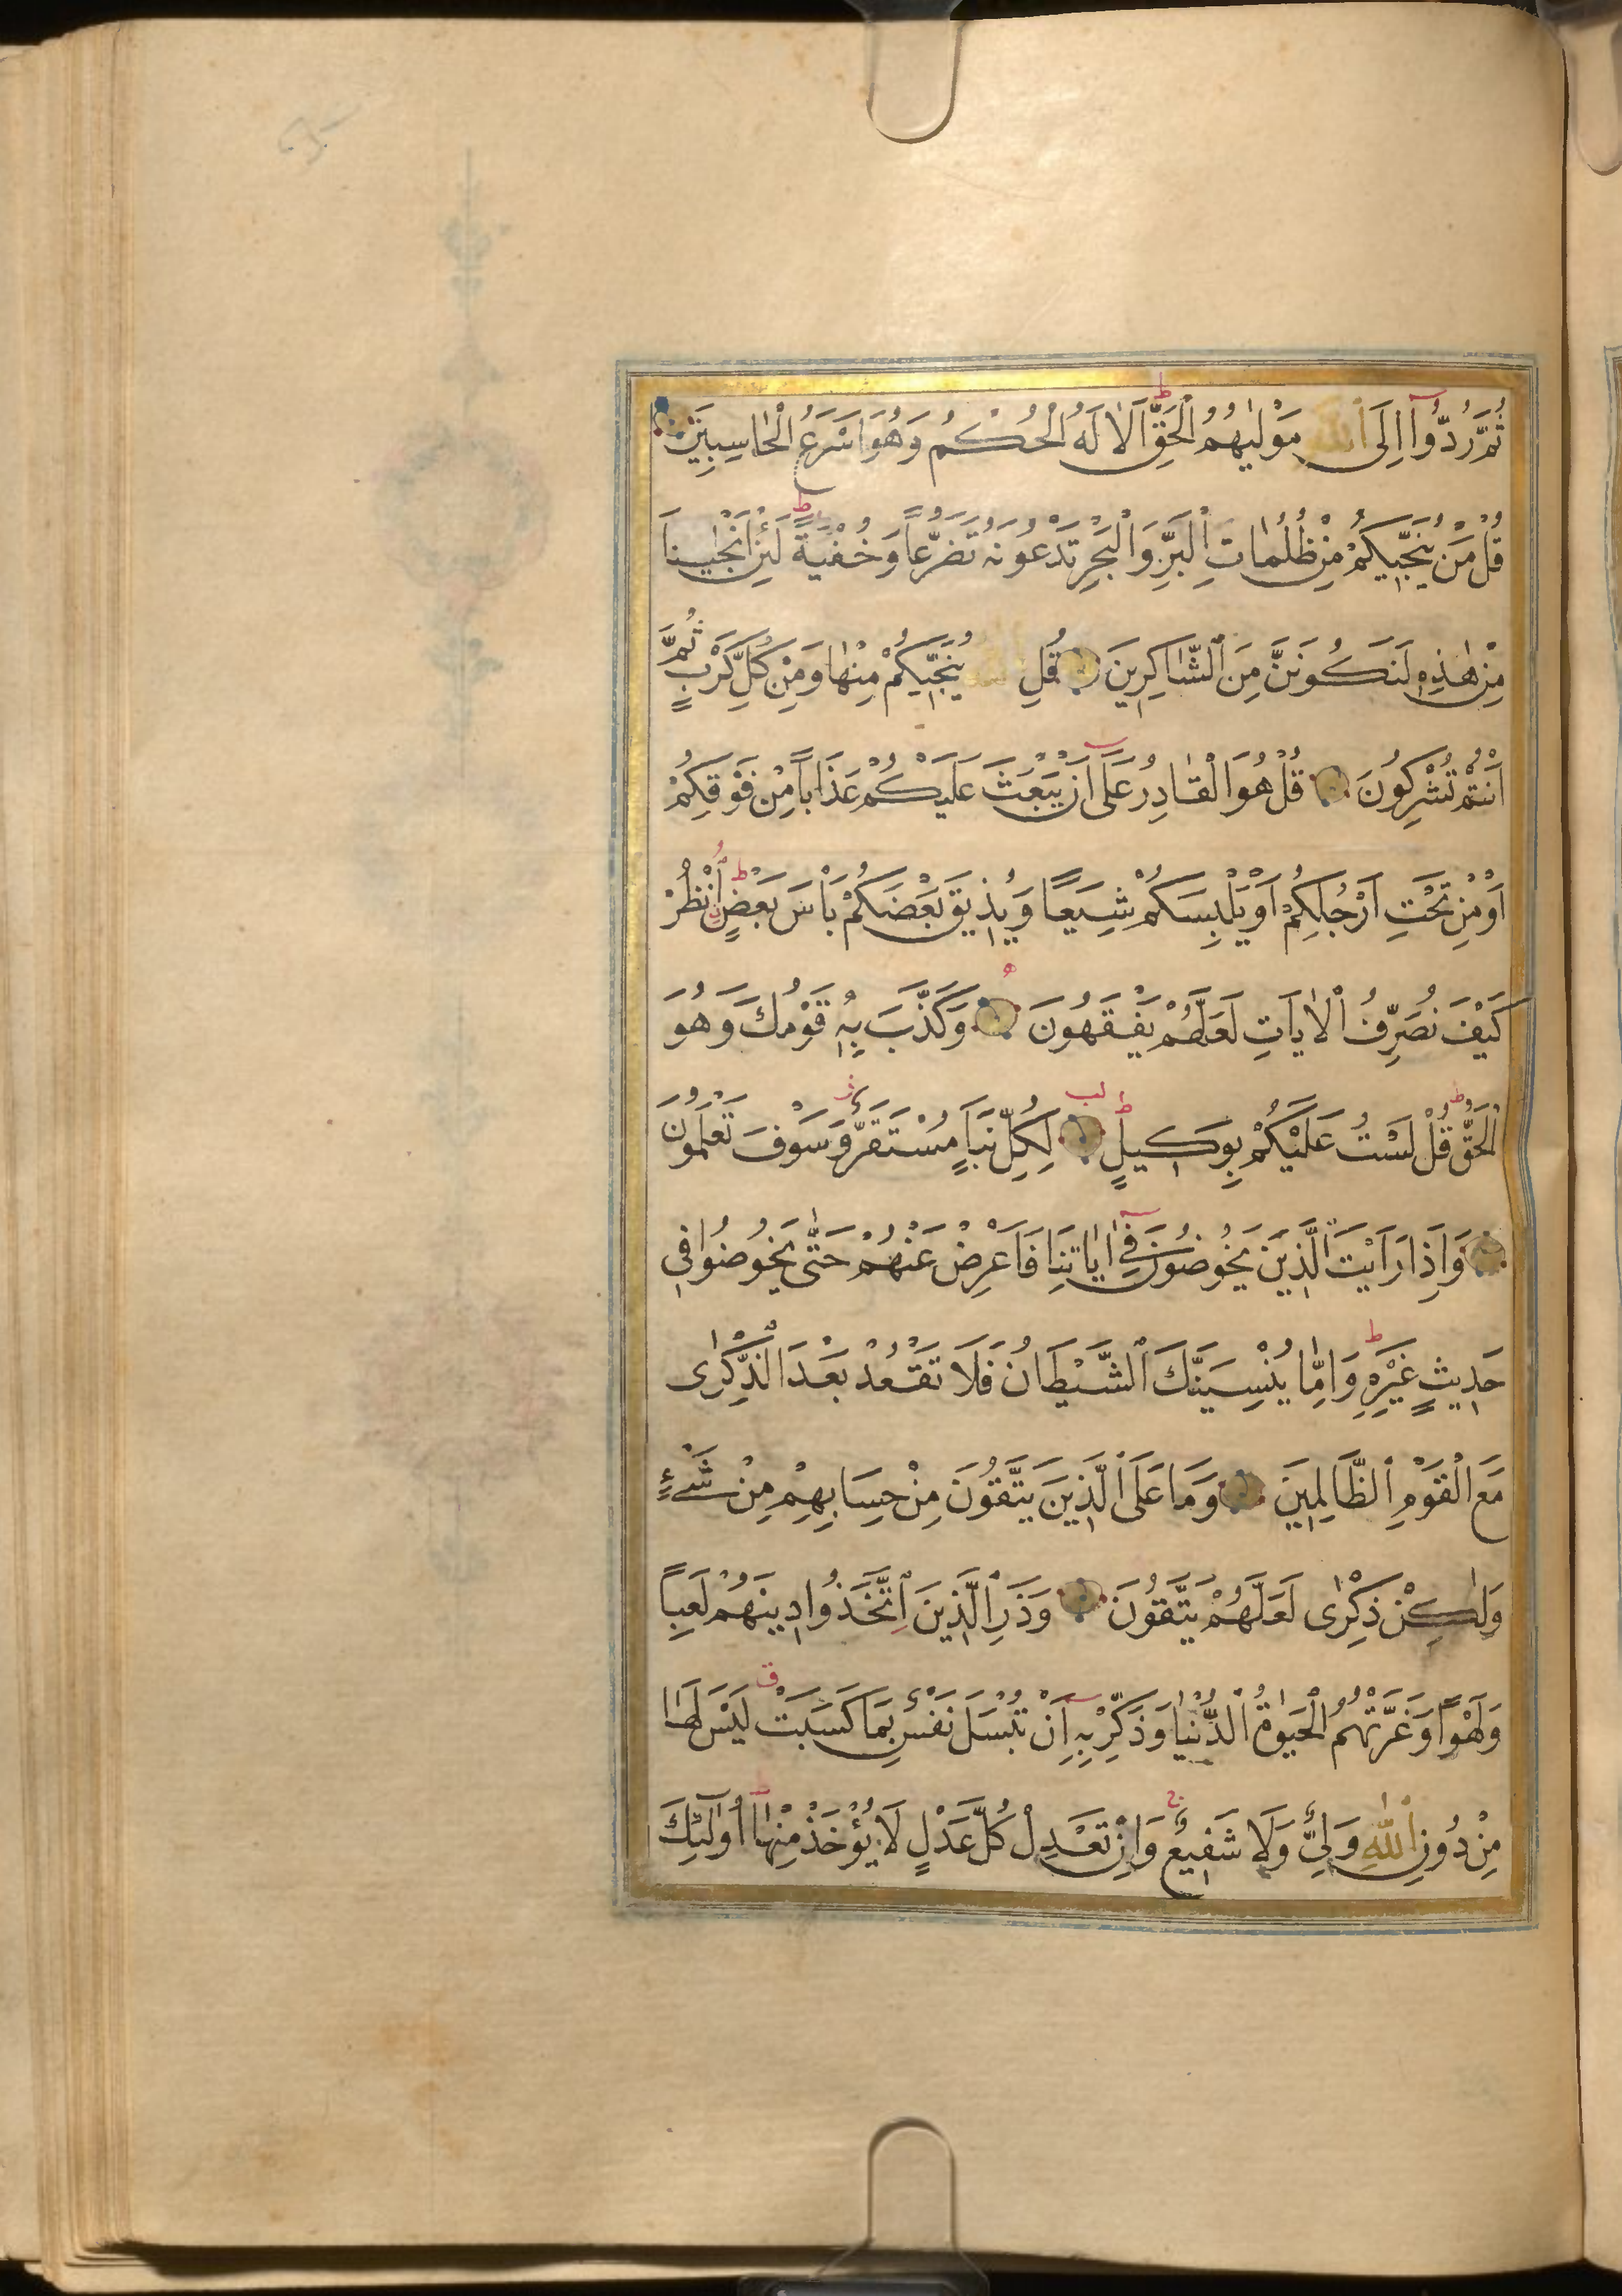 ثُمَّ رُدُّوٓا اِلَى ٱللّٰهِ مَوْلٰيهُمُ الْحَقِّ ط اَلَا لَهُ الْحُكْمُ وَهُوَ اَسْرَعُ الْحَاسِبِينَ
قُلْ مَنْ يُنَجِّيكُمْ مِنْ ظُلُمَاتِ الْبَرِّ وَالْبَحْرِ تَدْعُونَهُ تَضَرُّعًا وَخُفْيَةً ط لَئِنْ اَنْجٰينَا
مِنْ هٰذِهِ لَنَكُونَنَّ مِنَ ٱلشَّاكِرِينَ قُلِ ٱللّٰهُ يُنَجِّيكُمْ مِنْهَا وَمِنْ كُلِّ كَرْبٍ ثُمَّ
اَنْتُمْ تُشْرِكُونَ قُلْ هُوَ الْقَادِرُ عَلٰٓى اَنْ يَبْعَثَ عَلَيْكُمْ عَذَابًا مِنْ فَوْقِكُمْ
اَوْ مِنْ تَحْتِ اَرْجُلِكُمْ اَوْ يَلْبِسَكُمْ شِيَعًا وَيُذِيقَ بَعْضَكُمْ بَاْسَ بَعْضٍ ط اُنْظُرْ
كَيْفَ نُصَرِّفُ ٱلْاٰيَاتِ لَعَلَّهُمْ يَفْقَهُونَ وَكَذَّبَ بِهِ قَوْمُكَ وَهُوَ
الْحَقُّ ط قُلْ لَسْتُ عَلَيْكُمْ بِوَكِيلٍ ط لب لِكُلِّ نَبَاٍ مُسْتَقَرٌّ ز وَسَوْفَ تَعْلَمُونَ
وَاِذَا رَاَيْتَ الَّذِينَ يَخُوضُونَ فِىٓ اٰيَاتِنَا فَاَعْرِضْ عَنْهُمْ حَتّٰى يَخُوضُوا فِى
حَدِيثٍ غَيْرِهِ ط وَاِمَّا يُنْسِيَنَّكَ ٱلشَّيْطَانُ فَلَا تَقْعُدْ بَعْدَ ٱلذِّكْرٰى
مَعَ الْقَوْمِ ٱلظَّالِمِينَ وَمَا عَلَى ٱلَّذِينَ يَتَّقُونَ مِنْ حِسَابِهِمْ مِنْ شَىْءٍ
وَلٰكِنْ ذِكْرٰى لَعَلَّهُمْ يَتَّقُونَ وَذَرِ ٱلَّذِينَ اتَّخَذُوا دِينَهُمْ لَعِبًا
وَلَهْوًا وَغَرَّتْهُمُ الْحَيٰوةُ ٱلدُّنْيَا وَذَكِّرْ بِهِٓ اَنْ تُبْسَلَ نَفْسٌ بِمَا كَسَبَتْ ق لَيْسَ لَهَا
مِنْ دُونِ ٱللّٰهِ وَلِىٌّ وَلَا شَفِيعٌ ج وَاِنْ تَعْدِلْ كُلَّ عَدْلٍ لَا يُؤْخَذْ مِنْهَا ط اُولٰٓئِكَ